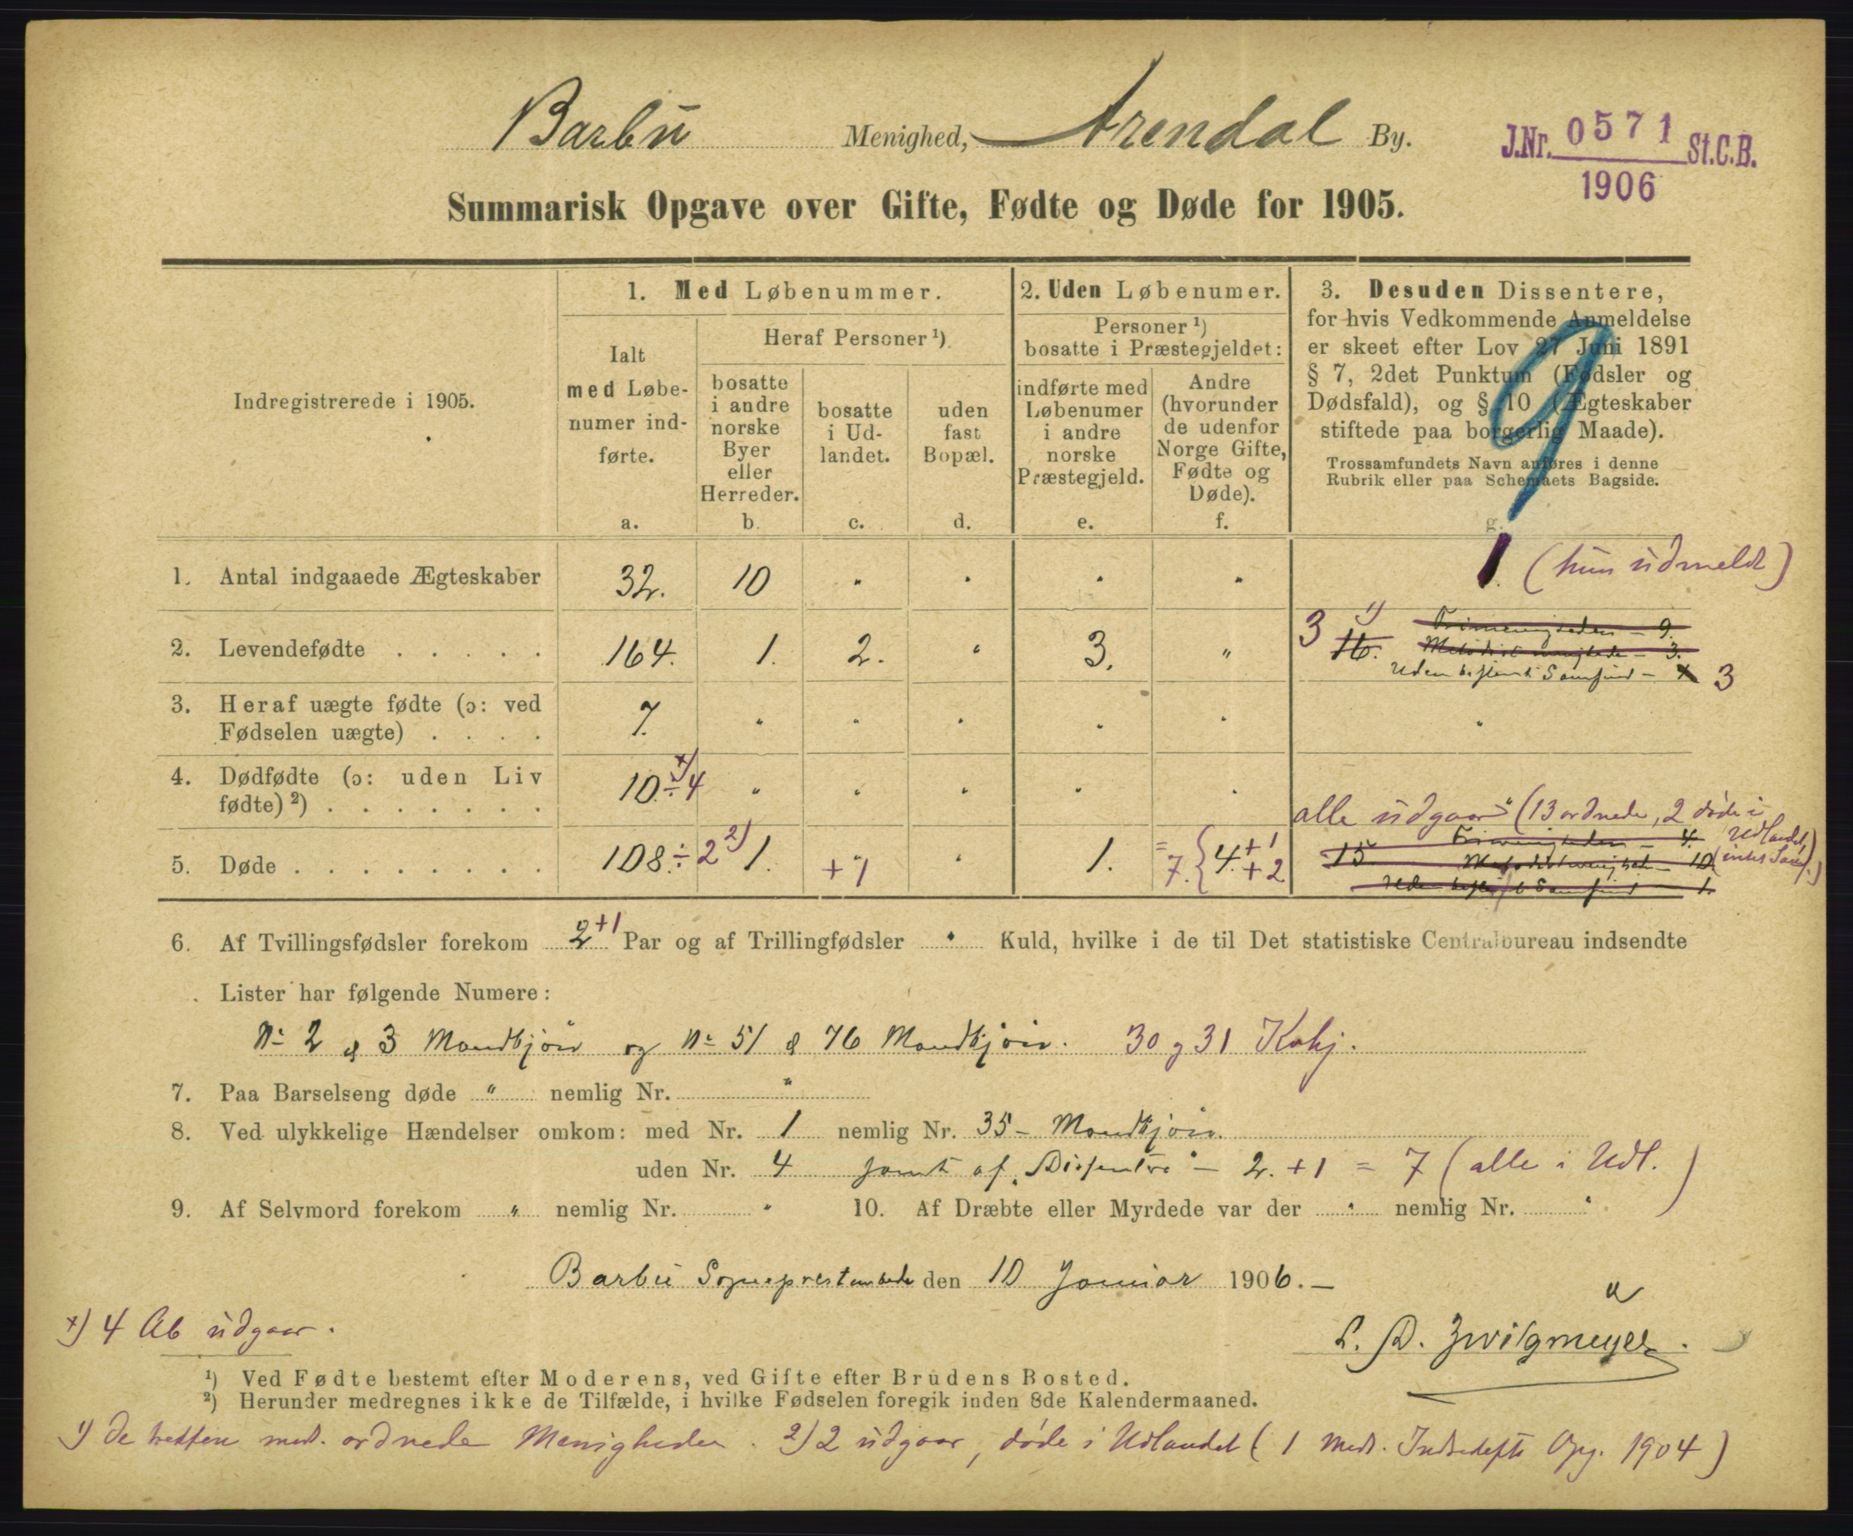 Barbu Menighed, Arendal By.
J.Nr. 0571 St.C.B.
1906
Summarisk Opgave over Gifte, Fødte og Døde for 1905.
Indregistrerede i 1905.
1. Med Løbenummer.
Ialt
med Løbe-
numer ind-
førte.
a.
Heraf Personer ¹)
bosatte
i andre
norske
Byer
eller
Herreder.
b.
bosatte
i Ud-
landet.
c.
uden
fast
Bopæl.
d.
2. Uden Løbenumer.
Personer ¹)
bosatte i Præstegjeldet:
indførte med
Løbenumer
i andre
norske
Præstegjeld.
e.
Andre
(hvorunder
de udenfor
Norge Gifte,
Fødte og
Døde).
f.
3. Desuden Dissentere,
for hvis Vedkommende Anmeldelse
er skeet efter Lov 27 Juni 1891
§ 7, 2det Punktum (Fødsler og
Dødsfald), og § 10 (Ægteskaber
stiftede paa borgerlig Maade).
Trossamfundets Navn anføres i denne
Rubrik eller paa Schemaets Bagside.
g.
1. Antal indgaaede Ægteskaber 32. 10 " " " " 1 (hun udmeldt)
2. Levendefødte . . . . . 164. 1. 2. " 3. " 3 16. ¹)
Frimenigheden - 9.
Metodistmenighede - 3.
Uden bestemt Samfund - 4 3
3. Heraf uægte fødte (ɔ: ved
Fødselen uægte) . . . . 7. " " " " " "
4. Dødfødte (ɔ: uden Liv
fødte) ²) . . . . . . . 10 ÷ 4 ˣ) " " " " " "
alle udgaar (13 ordnede, 2 døde i
Udlandet,
5. Døde . . . . . . . . 108 ÷ 2 ²) 1. +1 " 1. = 7. { 4. +1 +2 15
Frimenigheden - 4.
Metodistmenighed - 10
Uden bestemt Samfund - 1.
6. Af Tvillingsfødsler forekom 2 +1 Par og af Trillingfødsler " Kuld, hvilke i de til Det statistiske Centralbureau indsendte
Lister har følgende Numere:
Nr 2 & 3 Mandkjøn og Nr 51 & 76 Mandkjøn. 30 og 31 Kvkj.
7. Paa Barselseng døde " nemlig Nr. "
8. Ved ulykkelige Hændelser omkom: med Nr. 1 nemlig Nr. 35 - Mandkjøn.
uden Nr. 4 samt af "Dissentre" - 2. +1 = 7 (alle i Udl.)
9. Af Selvmord forekom " nemlig Nr. " 10. Af Dræbte eller Myrdede var der " nemlig Nr. "
Barbu Sogneprestembede den 10 Januar 1906. -
L. D. Zwilgmeyer.
ˣ) 4 Ab udgaar.
¹) Ved Fødte bestemt efter Moderens, ved Gifte efter Brudens Bosted.
²) Herunder medregnes ikke de Tilfælde, i hvilke Fødselen foregik inden 8de Kalendermaaned.
¹) De tretten medl. ordnede Menigheder. ²) 2 udgaar, døde i Udlandet (1 Medt. Indsedefts Opg. 1904)